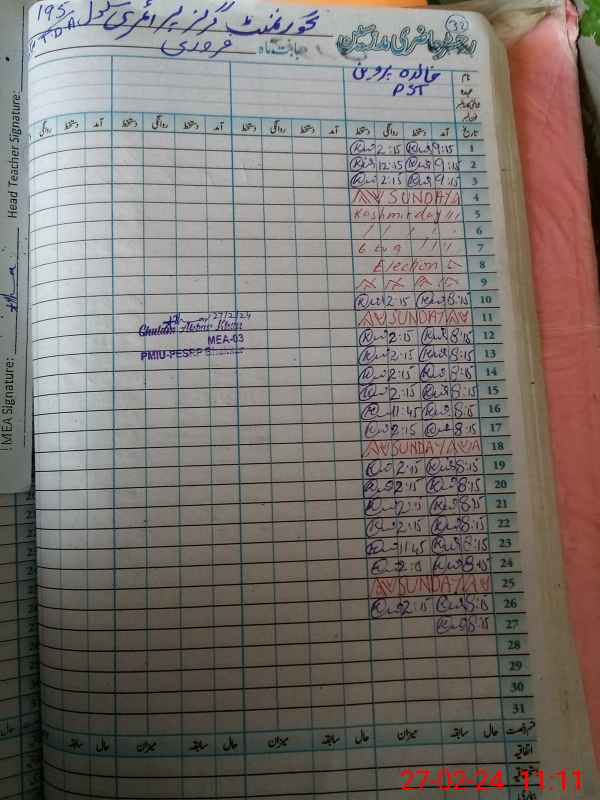 195 گورنمنٹ گرلز پرائمری سکول
T.D.A
رجسٹر حاضری مدرسین 32
بابت ماہ فروری
نام خالدہ پروین
عہدہ PST
تاریخ آمد دستخط روانگی دستخط آمد دستخط روانگی دستخط آمد دستخط روانگی دستخط آمد
1 9:15 2:15
2 9:15 12:15
3 9:15 2:15
4 SUNDAY
5 Kashmir day
6
7
8 Election
9
10 8:15 2:15
11 SUNDAY
12 8:15 2:15
13 8:15 2:15
14 8:15 2:15
15 8:15 2:15
16 8:15 11:45
17 8:15 2:15
18 SUNDAY
19 8:15 2:15
20 8:15 2:15
21 8:15 2:15
22 8:15 2:15
23 8:15 11:45
24 8:15 2:15
25 SUNDAY
26 8:15 2:15
27 8:15
28
29
30
31
27/2/24
Ghulam Abbas Khan
MEA-03
PMIU-PESRP
حال سابقہ میزان حال سابقہ میزان حال سابقہ میزان حال سابقہ
اتفاقیہ
Head Teacher Signature:
MEA Signature:
27-02-24 11:11